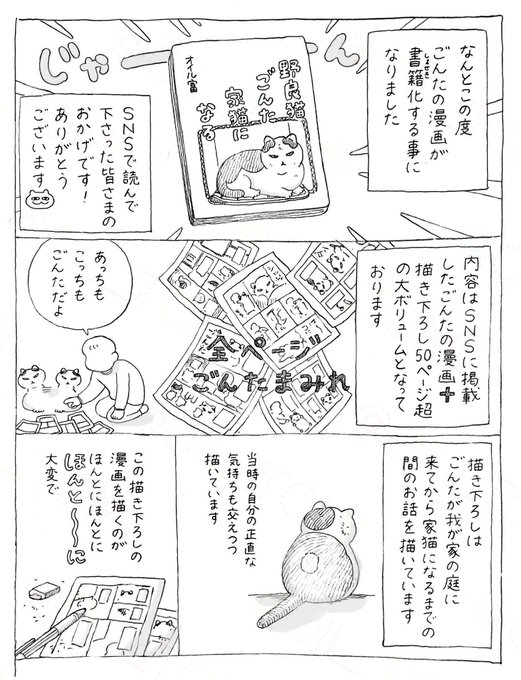 なんとこの度
ごんたの漫画が
書籍化する事に
なりました
じゃーーん
野良猫
ごんた
家猫に
なる
オイル富
SNSで読んで
下さった皆さまの
おかげです！
ありがとう
ございます
内容はSNSに掲載
したごんたの漫画＋
描き下ろし50ページ超
の大ボリュームとなって
おります
全ページ
ごんたまみれ
あっちも
こっちも
ごんただよ
描き下ろしは
ごんたが我が家の庭に
来てから家猫になるまでの
間のお話を描いています
当時の自分の正直な
気持ちも交えつつ
描いています
この描き下ろしの
漫画を描くのが
ほんとにほんとに
ほんと〜〜に
大変で